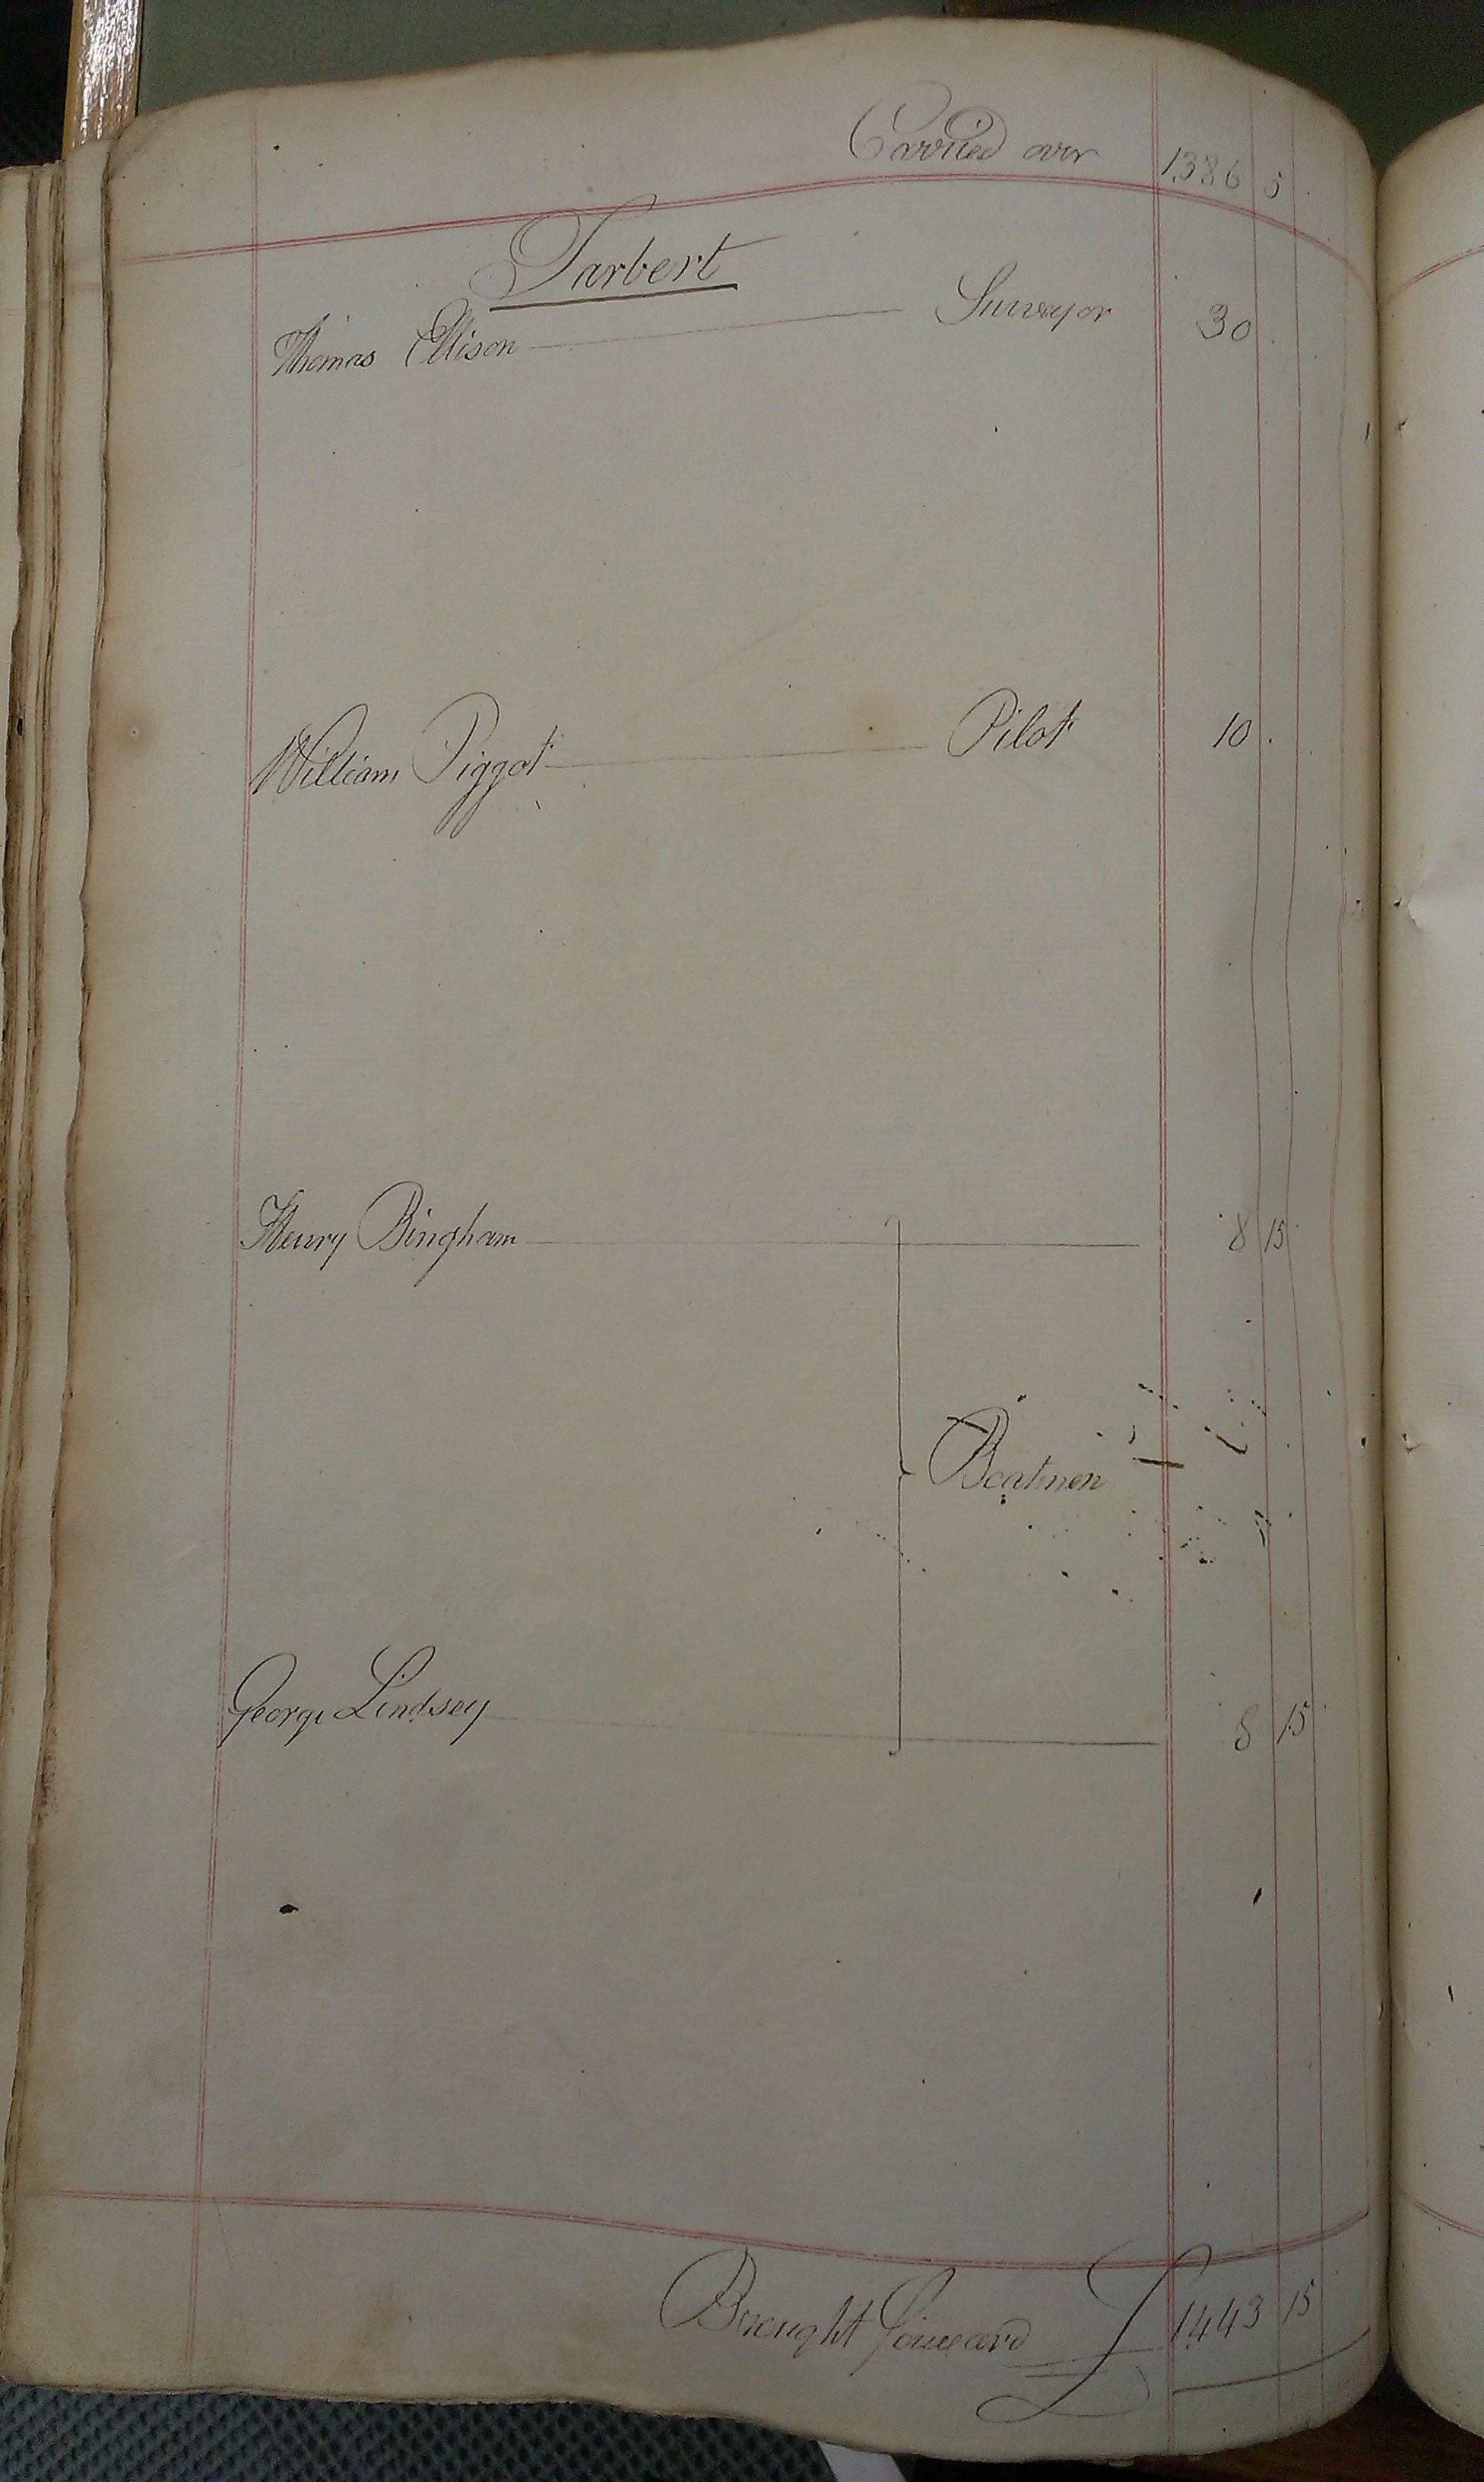 Carried over 1386 5
Tarbert
Thomas Ellison Surveyor 30
William Piggot Pilot 10
Henry Bingham 8 15
Boatmen
George Lindsey 8 15
Brought forward £ 1443 15